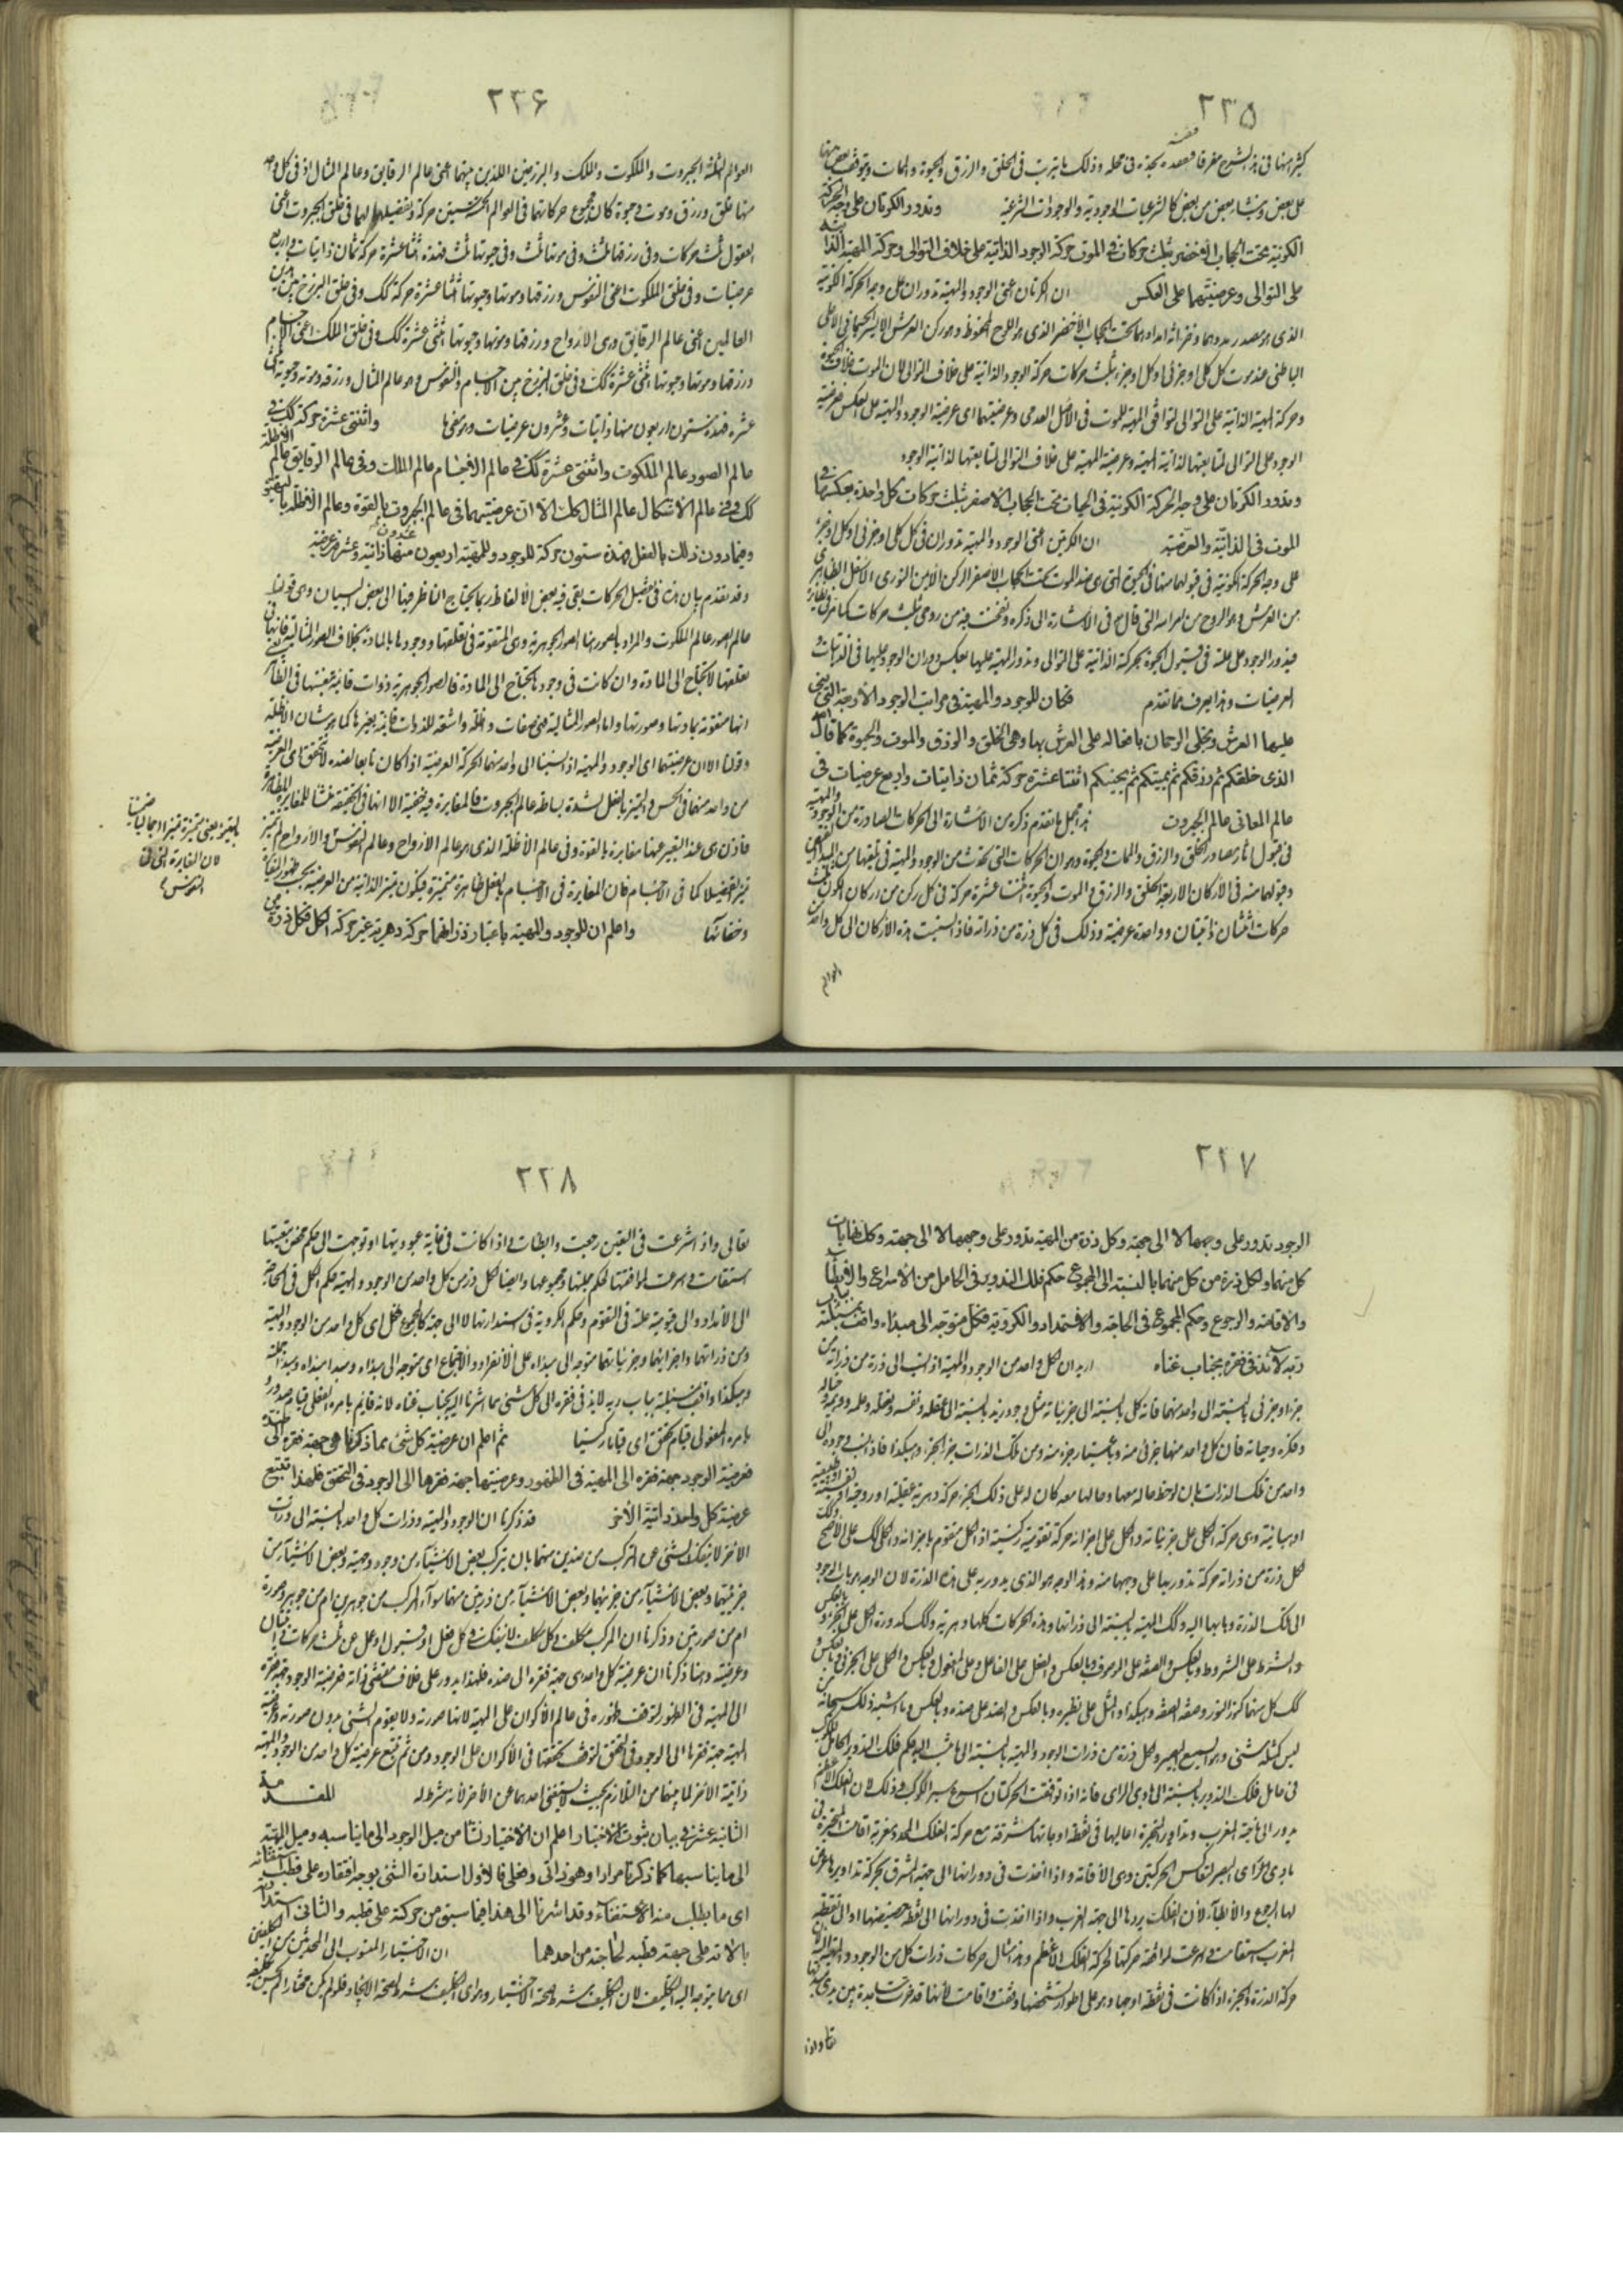 ٢٣٥
على بعض وينشا بعض من بعض كالشرعيات الوجودية والوجودات الشرعية وتدور الكرتان على وجه الحركة
الكونية تحت الحجاب الأخضر بثلث حركات في الموت حركة الوجود الذاتية على خلاف التوالي وحركة المهية الذا
على التوالي وعرضيتهما على العكس ان الكرتان اعني الوجود والمهية تدوران على وجه الحركة الكونية
الباطني عند موت كل كلي او جزئي او كل او جزء بثلث حركات حركة الوجود الذاتية على خلاف التوالي لان الموت خلاف الحيوة
وحركة المهية الذاتية على التوالي لتوافق المهية للموت في الأصل العدمي وعرضيتهما اى عرضية الوجود والمهية على العكس فعرضية
الوجود على التوالي لمتابعتها لذاتية المهية وعرضية المهية على خلاف التوالي لمتابعتها لذاتية الوجود
وتدور الكرتان على وجه الحركة الكونية في الحيات تحت الحجاب الاصفر بثلث حركات كل واحدة بعكسها في
الموت في الذاتية والعرضية ان الكرتين اعني الوجود والمهية تدوران في كل كلي او جزئي او كل او جزء
على وجه الحركة الكونية في قبولهما منها في الحيوة التي هي ضد الموت تحت الحجاب الأصفر الركن الأيمن النورى الأسفل الظاهرى
من العرش وهو الروح من امر الله التي قال في الأشارة الى ذكره ونفخت فيه من روحي بثلث حركات
فيدور الوجود على علته في قبول الحيوة بحركته الذاتية على التوالي وتدور المهية عليها بعكس دوران الوجود عليها في الذاتيات و
العرضيات وهذا يعرف مما تقدم فكان للوجود والمهية في مراتب الوجود الأربعة التي بنى
عليها العرش وتجلى الرحمان بافعاله على العرش بها وهي الخلق والرزق والموت والحيوة كما قال
الذى خلقكم ثم رزقكم ثم يميتكم ثم يحييكم اثنتا عشرة حركة ثمان ذاتيات واربع عرضيات في
عالم المعاني عالم الجبروت هذا مجمل ما تقدم ذكره من الأشارة الى الحركات الصادرة من الوجود والمهية
وقبولهما منه في الأركان الاربعة الخلق والرزق والموت والحيوة اثنتا عشرة حركة في كل ركن من اركان الكون ثلث
حركات اثنتان ذاتيتان وواحدة عرضية وذلك في كل ذرة من ذراته فاذا نسبت هذه الأركان الى كل واحد من
العوالم
٢٣٦
العوالم الثلثة الجبروت والملكوت والملك والبرزخين اللذين بينهما اعني عالم الرقايق وعالم المثال اذ في كل واحد
منها خلق ورزق وموت وحيوة كان مجموع حركاتهما في العوالم الخمسة ستين حركة وتفصيلها لهما في خلق الجبروت اعني
العقول ثلث حركات وفي رزقها ثلث وفي موتها ثلث وفي حيوتها ثلث فهذه اثنتا عشرة حركة ثمان ذاتيات واربع
عرضيات وفي خلق الملكوت اعني النفوس ورزقها وموتها وحيوتها اثنتا عشرة حركة كك وفي خلق البرزخ بين هذين
العالمين اعني عالم الرقايق وهي الأرواح ورزقها وموتها وحيوتها اثنتي عشرة كك وفي خلق الملك اعني الأجسام
ورزقها وموتها وحيوتها اثنتي عشرة كك وفي خلق البرزخ بين الأجسام والنفوس وهو عالم المثال ورزقه وموته وحيوته اثنتا
عشرة فهذه ستون اربعون منها ذاتيات وعشرون عرضيات واثنتي عشرة حركة كك في
عالم الصور عالم الملكوت واثنتي عشرة كك في عالم الاجسام عالم الملك وفي عالم الرقايق عالم الاظلة
كك وفي عالم الأشكال عالم المثال كك الا ان عرضيتهما في عالم الجبروت بالقوة وعالم الاظلة بالتهيؤ
وفيما دون ذلك بالفعل فهذه ستون حركة للوجود وللمهية اربعون منها ذاتية وعشرون عرضية
وقد تقدم بيان هذه في تفصيل الحركات بقي فيه بعض الألفاظ ربما يحتاج الناظر فيها الى بعض البيان وهي قولنا
عالم الصور عالم الملكوت والمراد بالصور هنا الصور الجوهرية وهي المتقومة في تعلقها ووجودها بالمادة بخلاف الصور المثالية فانها في
تعلقها لا تحتاج الى المادة وان كانت في وجودها تحتاج الى المادة فالصور الجوهرية ذوات قائمة بنفسها في الظا
انها متقومة بمادتها وصورتها واما الصور المثالية فهي صفات واظلة واشعة للذوات قائمة بغيرها كما هو شان الأظلة
وقولنا الا ان عرضيتهما اى الوجود والمهية اذ نسبنا الى واحد منهما الحركة العرضية اذا كان تابعا لضده
من واحد منهما في الحس والتميز بالفعل لشدة بساطة عالم الجبروت فالمغايرة فيه خفية الا انها في الحقيقة
فاذن هي عند التعبير عنها مغايرة بالقوة وفي عالم الأظلة الذى هو عالم الارواح وعالم النفوس والأرواح لم تتميز
تميزا تفصيليا كما في الأجسام فان المغايرة في الأجسام بالفعل ظاهرة متميزة فيكون تميز الذاتية من العرضية بحسب ظهور المغايرة
وخفائها واعلم ان للوجود والمهية باعتبار ذراتهما حركة دهرية غير حركة الكل فكل ذرة من
لان المغايرة التي في
النفوس
٢٣٧
الوجود تدور على وجهها لا الى جهة وكل ذرة من المهية تدور على وجهها لا الى جهة وكل نهايات
كل منهما ولكل ذرة من كل منهما بالنسبة الى المجموع حكم فلك التدوير في الحامل من الأسراع والأبطا
والأقامة والرجوع وحكم المجموع في الحاجة والاستمداد والكروية فكل متوجه الى مبدئه واقف بمسئلته بباب
ربه لائذ في فقره بجناب غناه اريد ان كل واحد من الوجود والمهية اذا نسب الى ذرة من ذراته من
جزء او جزئي بالنسبة الى واحد منهما فانه كل بالنسبة الى جزئياته مثل وجود زيد بالنسبة الى عقله ونفسه وتعقله وعلمه ووهمه وخياله
وفكره وحياته فان كل واحد منها جزئي منه وباعتبار جزء منه ومن تلك الذرات جزء الجزء وهكذا فاذا نسب وجوده الى
واحد من تلك الذرات بان لوحظ ماله معها وما لها معه كان له على ذلك الجزء حركة دهرية عقلية او روحية او نفسية او طبيعية
او هبائية وهي حركة الكلي على جزئياته والكل على اجزائه حركة تقومية ركنية اذ الكل متقوم باجزائه والكلي كك على الأصح
لكل ذرة من ذراته حركة تدور بها على وجهها منه وهذا الوجه هو الذى يدور به على هذه الذرة لان الوجه هو باب الوجود
الى تلك الذرة وبابها اليه وكك المهية بالنسبة الى ذراتها وهذه الحركات كلها دهرية وكك كدورة الكل على الجزء وبالعكس
والشرط على المشروط وبالعكس والصفة على الموصوف وبالعكس والفعل على الفاعل وعلى المفعول وبالعكس والكلي على الجزئي وبالعكس و
كك كل منهما كنور النور وصفة الصفة وهكذا والمثل على نظيره وبالعكس والضد على ضده وبالعكس وما اشبه ذلك سبحانه من
ليس كمثله شئ وهو السميع البصير ولكل ذرة من ذرات الوجود والمهية بالنسبة الى ما ننسب اليه حكم فلك التدوير الحامل للكوكب
في حامل فلك التدوير بالنسبة الى الحاوى الراى فانه اذا توافقت الحركتان اسرع سير الكوكب وذلك لان الفلك الأعظم
يدور الى جهة المغرب وتداوير المتحيرة اعاليها في نقطة اوجاتها مشرقة مع حركة الفلك المحدد مغربة اقامت المتحيرة في
بادى الراى البصر لتعاكس الحركتين وهي الأقامة واذا اخذت في دورانها الى جهة المشرق بحركة تداويرها عرض
لها الرجوع والأبطاء لأن الفلك يردها الى جهة المغرب واذا اخذت في دورانها الى نقطة حضيضها او الى نقطة
المغرب استقامت واسرعت لموافقة حركتها لحركة الفلك الأعظم وهذا مثال حركات ذرات كل من الوجود والمهية لأن
حركة الذرة والجزء اذا كانت في نقطة اوجها وهو على اطوار تشخصها وقفت واقامت لأنها قد خرت ساجدة بين يدى
تعالى واذا
٢٣٨
تعالى واذا شرعت في التعين رجعت وابطأت واذا كانت في غاية عبوديتها او توجهت الى حكم محض تبعيتها
استقامت واسرعت لموافقتها لحكم جملتها ومجموعها وايضا لكل ذرة من كل واحد من الوجود والمهية حكم الكل في الحاجة
الى الأمداد والى قيومية علته في التقوم وحكم الكروية في استدارتها لا الى جهة كالمجموع فكل اى كل واحد من الوجود والمهية
ومن ذراتهما واجزائهما وجزئياتهما متوجه الى مبدئه على الأنفراد والأجتماع اى متوجه الى مبدئه ومبدأ مبدئه ومبدأ علته
وهكذا واقف بمسئلته بباب ربه لايذ في فقره الى كل شئ مما اشرنا اليه بجناب غناه لانه قايم بامره الفعلي قيام صدور و
بامره المفعولي قيام تحقق اى قياما ركنيا ثم اعلم ان عرضية كل شئ مما ذكرنا هي جهة فقره الى ضده
فعرضية الوجود جهة فقره الى المهية في الظهور وعرضيتها جهة فقرها الى الوجود في التحقق فلهذا تتبع
عرضية كل واحد ذاتية الأخر قد ذكرنا ان الوجود والمهية وذرات كل واحد بالنسبة الى ذرات
الاخر لا ينفك الشئ عن التركب من ضدين منهما بان يتركب بعض الأشياء من وجود ومهية وبعض الأشياء من
جزئيهما وبعض الأشياء من جزئيهما وبعض الأشياء من ذرتين منهما سواء تركب من جوهرين ام من جوهر وصورة
ام من صورتين وذكرنا ان المركب مكلف وكل مكلف لا ينفك في كل فعل او قبول او عمل عن ثلث حركات ذاتيتان
وعرضية وهنا ذكرنا ان عرضية كل واحد هي جهة فقره الى ضده فلهذا يدور على خلاف مقتضى ذاته فعرضية الوجود جهة فقره
الى المهية في الظهور لتوقف ظهوره في عالم الأكوان على المهية لانها صورته ولا يقوم الشئ بدون صورته وعرضية
المهية جهة فقرها الى الوجود في التحقق لتوقف تحققها في الأكوان على الوجود ومن ثم تتبع عرضية كل واحد من الوجود والمهية
ذاتية الاخر لما بينهما من التلازم بحيث لا يستغني احدهما عن الأخر لأنه شرط له المقدمة
الثانية عشر في بيان ثبوت الأختيار اعلم ان الاختيار نشأ من ميل الوجود الى ما يناسبه وميل المهية
الى ما يناسبها كما ذكرنا مرارا وهو ذاتي وفعلي فالأول استدارة الشئ بوجه افتقاره على قطب استغنائه
اى ما يطلب منه الأستغناء وقد اشرنا الى هذا فيما سبق من حركته على قطبه والثاني استدارته
بالاته على جهة قطبه لحاجته من احدهما ان الأختيار المنسوب الى المحدثين من المكلفين
اى مما يتوجه اليه التكليف لان التكليف شرط صحته الأختيار وهو اى التكليف شرط صحة الايجاد فلو لم يكن مختارا لم يحسن تكليفه